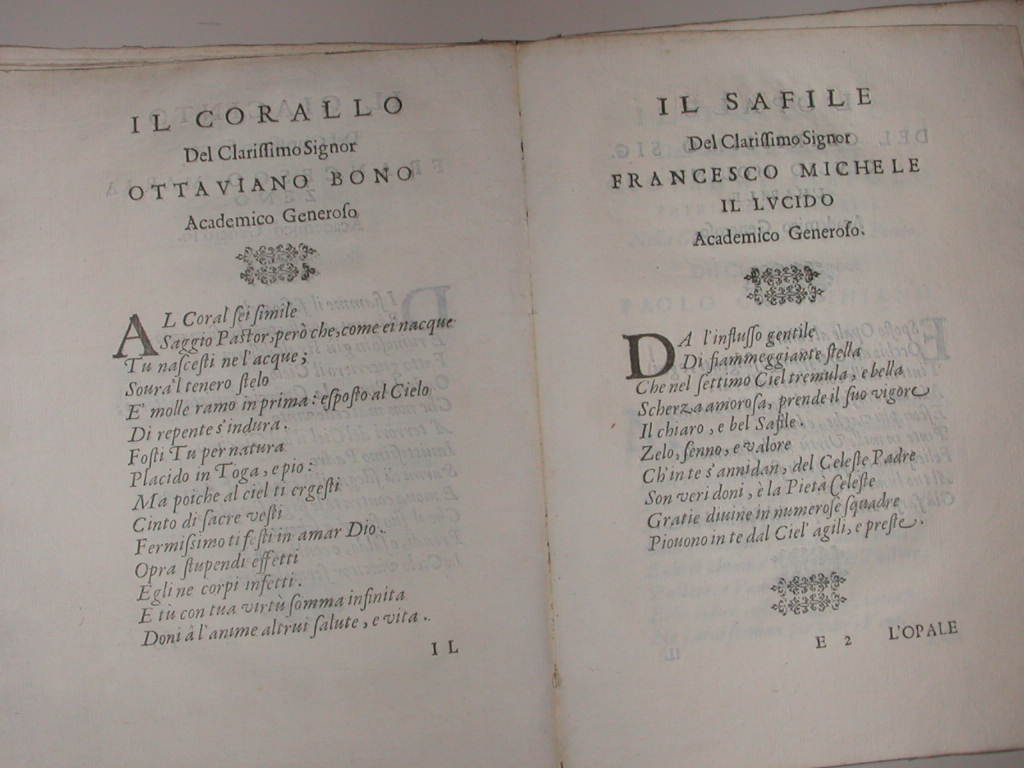 IL CORALLO
Del Clariſſimo Signor
OTTAVIANO BONO
Academico Generoſo
AL Coral ſei ſimile
Saggio Paſtor, però che, come ei nacque
Tu naſceſti ne l'acque;
Soura'l tenero ſtelo
E' molle ramo in prima: eſpoſto al Cielo
Di repente s'indura.
Foſti Tu per natura
Placido in Toga, e pio:
Ma poiche al ciel ti ergeſti
Cinto di ſacre veſti
Fermiſſimo ti feſti in amar Dio.
Opra ſtupendi effetti
Egli ne corpi infetti.
E tù con tua virtù ſomma infinita
Doni à l'anime altrui ſalute, e vita.
IL
IL SAFILE
Del Clariſſimo Signor
FRANCESCO MICHELE
IL LVCIDO
Academico Generoſo.
DA l'influſſo gentile
Di fiammeggiante ſtella
Che nel ſettimo Ciel tremula, e bella
Scherza amoroſa, prende il ſuo vigore
Il chiaro, e bel Safile.
Zelo, ſenno, e valore
Ch'in te s'annidan, del Celeſte Padre
Son veri doni, è la Pietà Celeſte
Gratie diuine in numeroſe ſquadre
Piouono in te dal Ciel' agili, e preſte.
E 2 L'OPALE